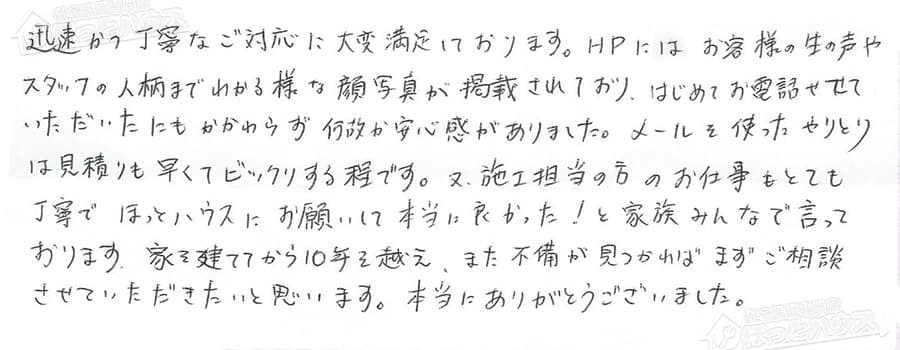 迅速かつ丁寧なご対応に大変満足しております。HPにはお客様の生の声や
スタッフの人柄までわかる様な顔写真が掲載されており、はじめてお電話せせて
いただいたにもかかわらず何故か安心感がありました。メールを使ったやりとり
は見積りも早くてビックリする程です。又、施工担当の方のお仕事もとても
丁寧でほっとハウスにお願いして本当に良かった！と家族みんなで言って
おります。家を建ててから10年を越え、また不備が見つかればまずご相談
させていただきたいと思います。本当にありがとうございました。
ほっとハウス